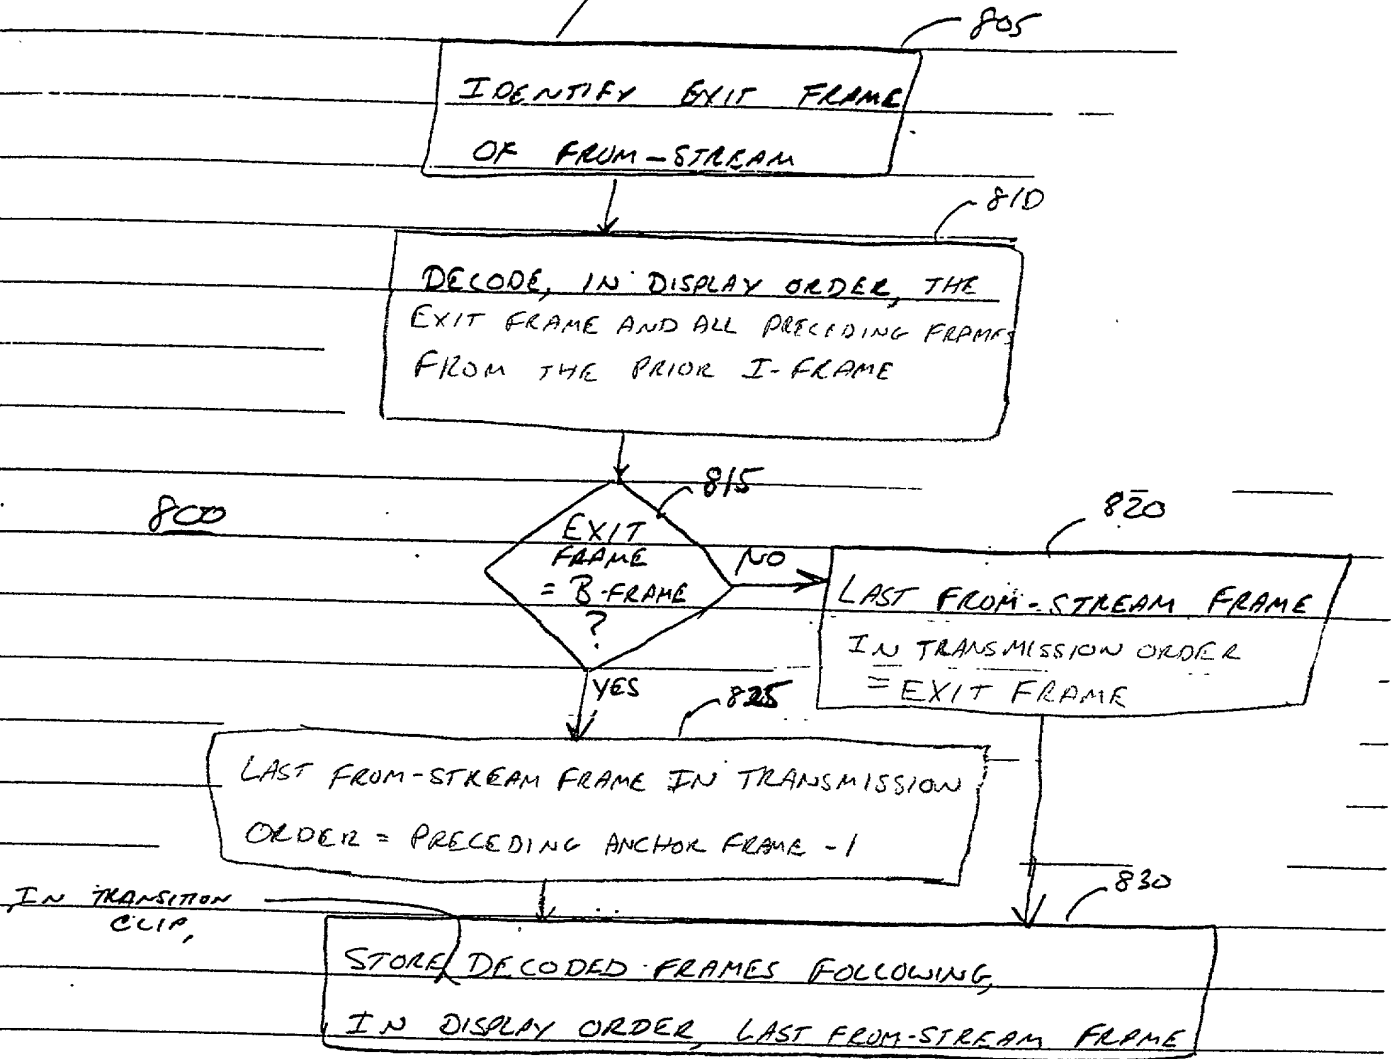 805
IDENTIFY EXIT FRAME
OF FROM-STREAM
810
DECODE, IN DISPLAY ORDER, THE
EXIT FRAME AND ALL PRECEDING FRAMES
FROM THE PRIOR I-FRAME
815
800
820
EXIT
FRAME
= B-FRAME
?
NO
LAST FROM-STREAM FRAME
IN TRANSMISSION ORDER
= EXIT FRAME
YES
825
LAST FROM-STREAM FRAME IN TRANSMISSION
ORDER = PRECEDING ANCHOR FRAME -1
830
IN TRANSITION
CLIP,
STORE DECODED FRAMES FOLLOWING,
IN DISPLAY ORDER, LAST FROM-STREAM FRAME